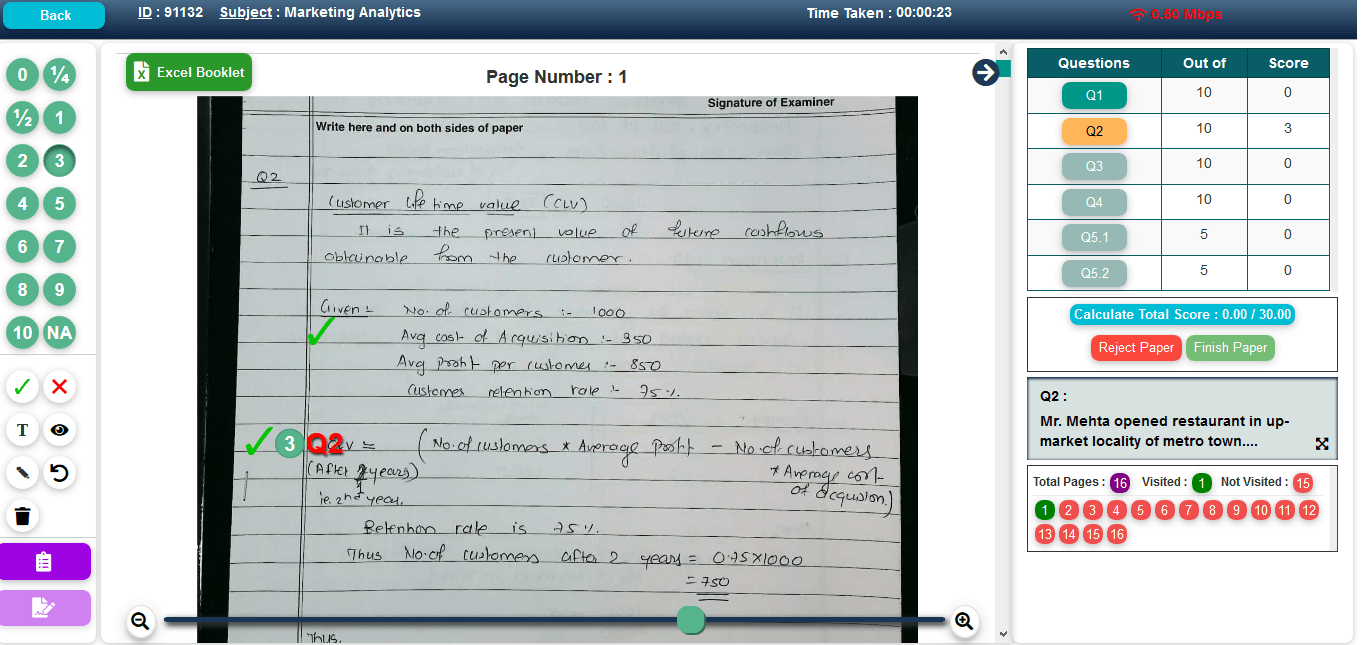 Back
ID : 91132 Subject : Marketing Analytics
Time Taken : 00:00:23
0.60 Mbps
0 ¼
½ 1
2 3
4 5
6 7
8 9
10 NA
T
Excel Booklet
Page Number : 1
Signature of Examiner
Write here and on both sides of paper
Q2
Customer life time value (CLV)
It is the present value of future cashflows
obtainable from the customer.
Given :- No. of customers :- 1000
Avg cost of Acquisition :- 350
Avg profit per customer :- 850
Customer retention rate :- 75%.
3 Q2
= (No. of customers * Average Profit - No. of customers
* Average cost
of acquision)
(After years)
ie. 2nd year.
Retention rate is 75%.
Thus No. of customers after 2 years = 0.75×1000
= 750
Thus,
Questions Out of Score
Q1 10 0
Q2 10 3
Q3 10 0
Q4 10 0
Q5.1 5 0
Q5.2 5 0
Calculate Total Score : 0.00 / 30.00
Reject Paper Finish Paper
Q2 :
Mr. Mehta opened restaurant in up-
market locality of metro town....
Total Pages : 16 Visited : 1 Not Visited : 15
1 2 3 4 5 6 7 8 9 10 11 12
13 14 15 16